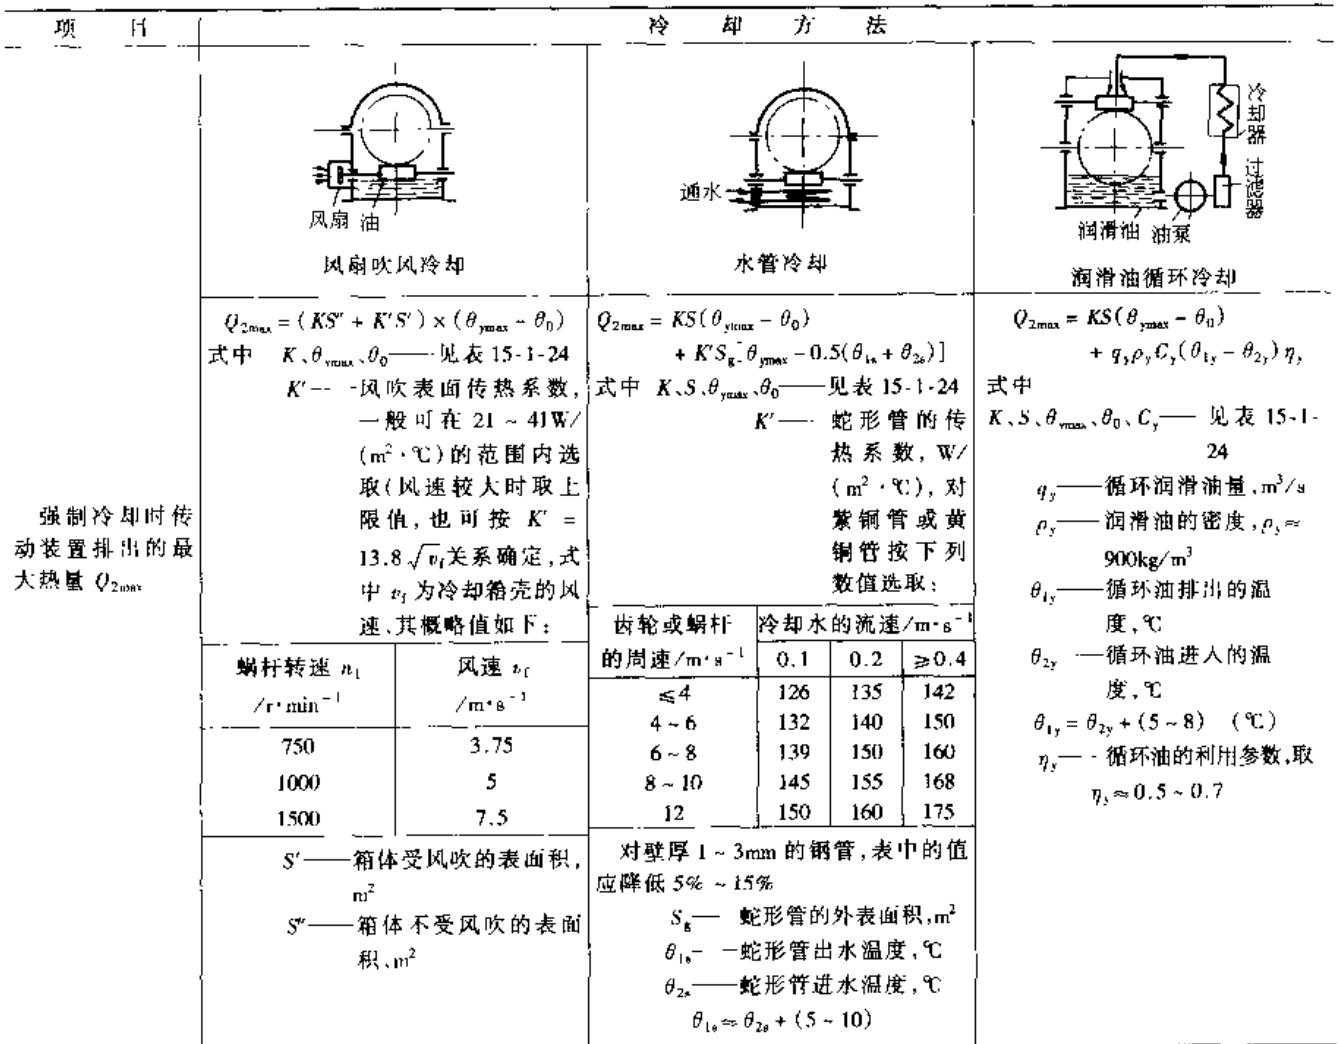 项 目
冷 却 方 法
风扇 油
风扇吹风冷却
通水
水管冷却
冷却器
过滤器
润滑油 油泵
润滑油循环冷却
强制冷却时传
动装置排出的最
大热量 Q₂max
Q₂max = (KS″ + K′S′) × (θymax − θ₀)
式中 K、θymax、θ₀——见表 15-1-24
K′——风吹表面传热系数,
一般可在 21 ~ 41W/
(m²·℃)的范围内选
取(风速较大时取上
限值,也可按 K′ =
13.8√vf关系确定,式
中 vf 为冷却箱壳的风
速、其概略值如下:
蜗杆转速 n₁
/r·min⁻¹
风速 vf
/m·s⁻¹
750 3.75
1000 5
1500 7.5
S′——箱体受风吹的表面积,
m²
S″——箱体不受风吹的表面
积、m²
Q₂max = KS(θymax − θ₀)
+ K′Sg[θymax − 0.5(θ1s + θ2s)]
式中 K、S、θymax、θ₀——见表 15-1-24
K′——蛇形管的传
热系数, W/
(m²·℃), 对
紫铜管或黄
铜管按下列
数值选取:
齿轮或蜗杆
的周速/m·s⁻¹
冷却水的流速/m·s⁻¹
0.1 0.2 ≥0.4
≤4 126 135 142
4 ~ 6 132 140 150
6 ~ 8 139 150 160
8 ~ 10 145 155 168
12 150 160 175
对壁厚 1 ~ 3mm 的钢管,表中的值
应降低 5% ~ 15%
Sg——蛇形管的外表面积,m²
θ1s——蛇形管出水温度,℃
θ2s——蛇形管进水温度,℃
θ1s ≈ θ2s + (5 ~ 10)
Q₂max = KS(θymax − θ₀)
+ qyρyCy(θ1y − θ2y)ηy
式中
K、S、θymax、θ₀、Cy——见表 15-1-
24
qy——循环润滑油量,m³/s
ρy——润滑油的密度,ρy ≈
900kg/m³
θ1y——循环油排出的温
度,℃
θ2y——循环油进入的温
度,℃
θ1y = θ2y + (5 ~ 8) (℃)
ηy——循环油的利用参数,取
ηy ≈ 0.5 ~ 0.7